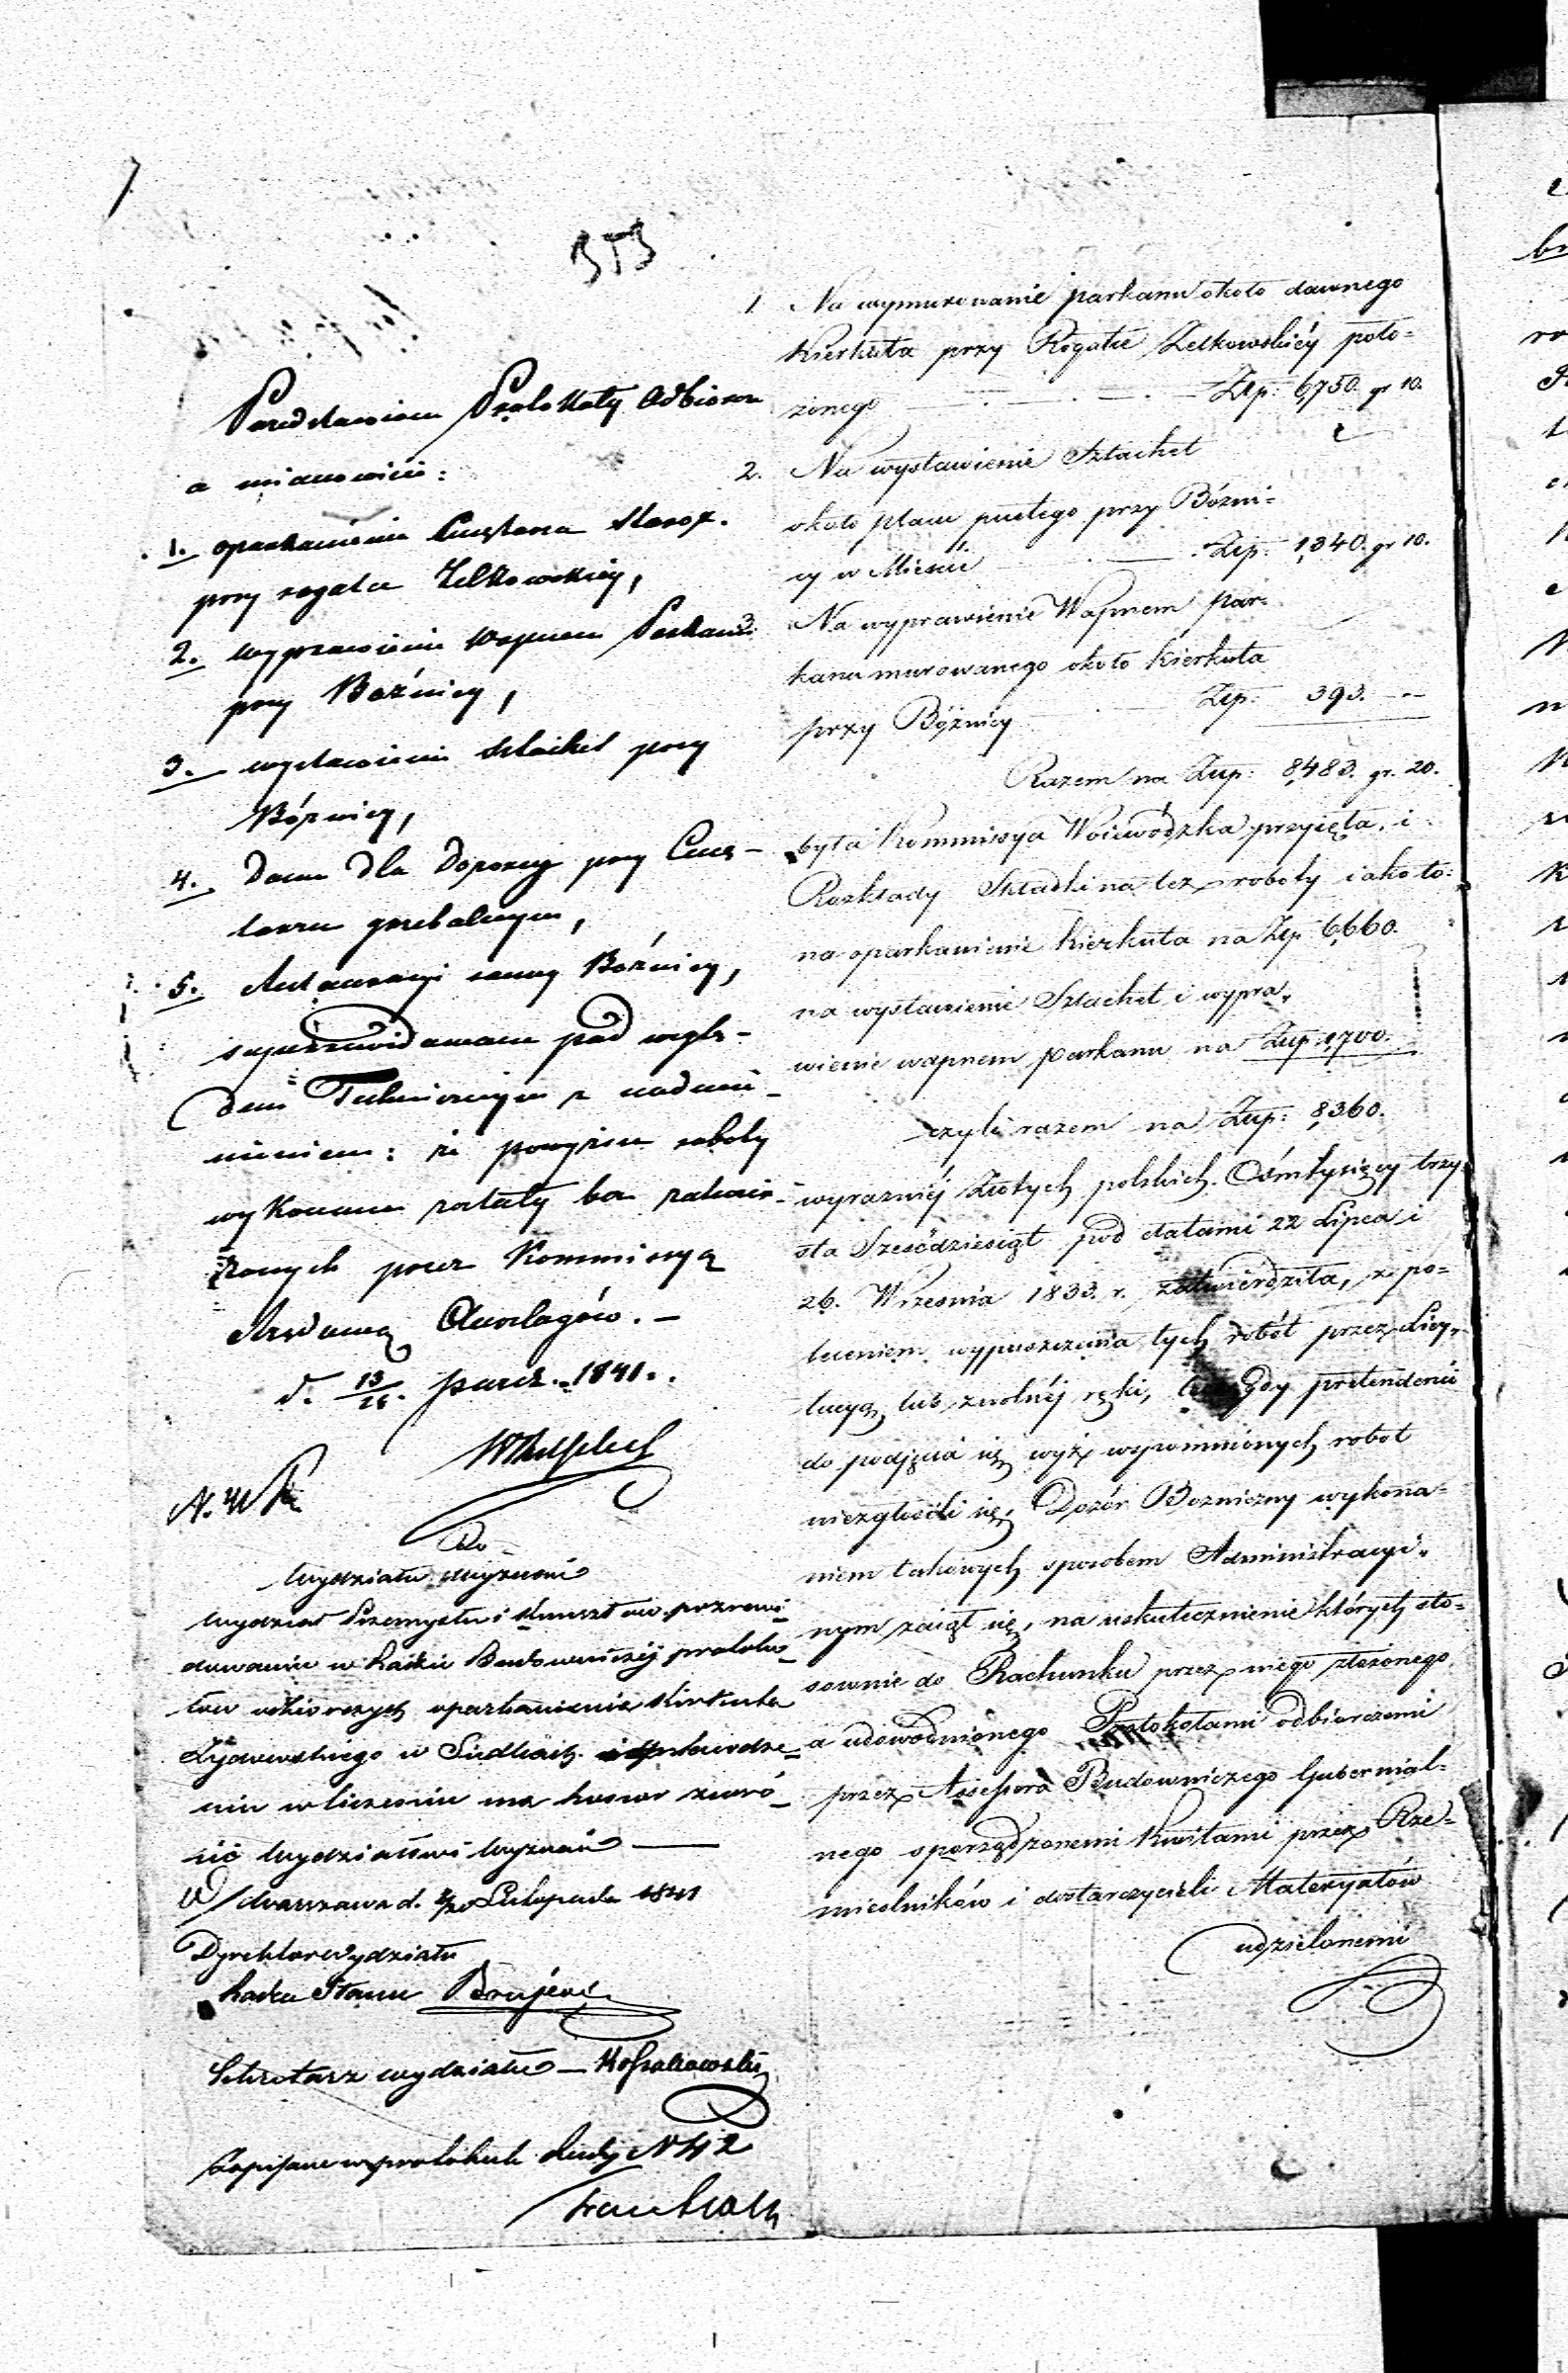 353
Przedstawione Protokóły Odbiorcze
a mianowicie:
1. oparkanienia Cmętarza Staroz.
przy rogatce Zelkowskiey,
2. wyprawienia wapnem Parkanu
przy Bożnicy,
3. wystawienia sztachet przy
Bóżnicy,
4. Domu dla Dozorcy przy Cmę-
tarzu grzebalnym,
5. Restauracyi samej Bóżnicy,
superrewidowane pod wzglę-
dem Technicznym z nadmi-
nieniem: że powyższe roboty
wykonane zostały bez zatwier-
dzonych przez Kommissyą
Rządową Anszlagów. –
d. 13/25 paźdz. 1841.
Do
Wydziału Wyznań
Wydział Przemysłu i Kunsztów po zrewi-
dowaniu w Radzie Budowniczéj protokó-
łów odbiorczych oparkanienia Kirkuta
Żydowskiego w Siedlcach
ma honor zwró-
cić Wydziałowi Wyznań
W Warszawie d. Listopada 1841
Dyrektor Wydziału
Radca Stanu
Sekretarz wydziału – Kossakowski
Zapisane w protokule Rady N 42
1. Na wymurowanie parkanu około dawnego
Kierkuta przy Rogatce Zelkowskiéy poło-
żonego Złp: 6,750. gr 10.
2. Na wystawienie Sztachet
około placu pustego przy Bóżni-
cy w Mieście Złp: 1,340. gr 10.
3. Na wyprawienie Wapnem par-
kanu murowanego około Kierkuta
przy Bóżnicy Złp. 393. –
Razem na Złp: 8,483. gr. 20.
była Kommissya Woiewódzka przyięła, i
Rozkłady Składki na też roboty iako to:
na oparkanienie Kierkuta na Złp 6,660.
na wystawienie Sztachet i wypra-
wienie wapnem parkanu na Złp: 1,700.
czyli razem na Złp: 8,360.
wyrazniéj Złotych polskich Ośmtysięcy trzy
sta Sześćdziesiąt pod datami 22 Lipca i
26. Wrzesnia 1833. r. zatwierdziła, z po-
leceniem wypuszczenia tych robót przez Licy-
tacyą, lub z wolnéj ręki, lecz gdy pretendenci
do podjęcia się wyż wspomnionych robot
niezgłosili się, Dozór Bozniczny wykona-
niem takowych sposobem Administracyi-
nym zaiął się, na uskutecznienie których sto-
sownie do Rachunku przez niego złożonego
a udowodnionego Protokołami odbiorczemi
przez Assessora Budowniczego Gubernial-
nego sporządzonemi Kwitami przez Rze-
mieślników i dostarczycieli Materyałów
udzielonemi